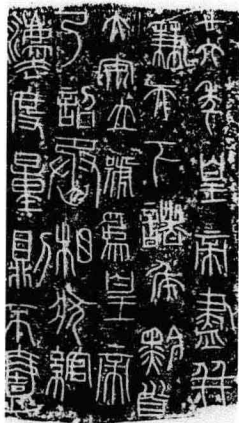 廿六年皇帝盡并
兼天下諸矦黔首
大安立號爲皇帝
乃詔丞相狀綰
灋度量則不壹